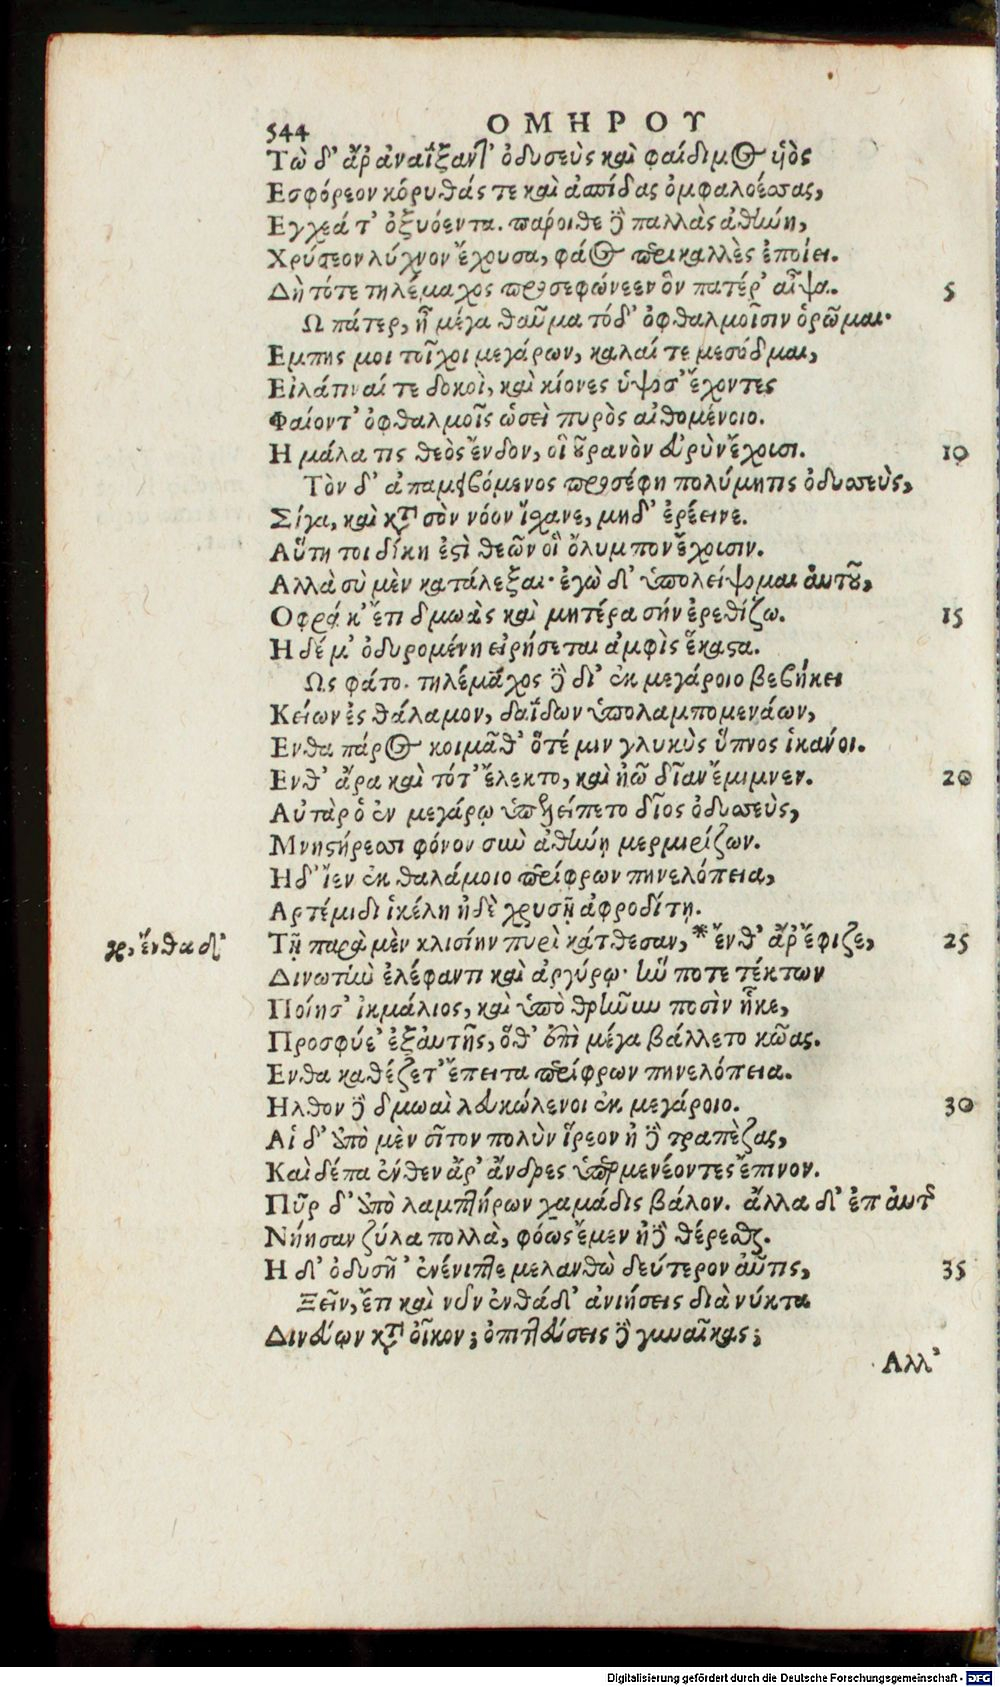 544 ΟΜΗΡΟΥ
Τὼ δ' ἄρ' ἀναΐξαντ' ὀδυσεὺς καὶ φαίδιμος υἱὸς
Εσφόρεον κόρυθάς τε καὶ ἀσπίδας ὀμφαλοέσσας,
Εγχεά τ' ὀξυόεντα. πάροιθε δὲ παλλὰς ἀθήνη,
Χρύσεον λύχνον ἔχουσα, φάος περικαλλὲς ἐποίει.
Δὴ τότε τηλέμαχος προσεφώνεεν ὃν πατέρ' αἶψα. 5
Ω πάτερ, ἦ μέγα θαῦμα τόδ' ὀφθαλμοῖσιν ὁρῶμαι·
Εμπης μοι τοῖχοι μεγάρων, καλαί τε μεσόδμαι,
Εἰλάτιναί τε δοκοὶ, καὶ κίονες ὑψόσ' ἔχοντες
Φαίοντ' ὀφθαλμοῖς ὡσεὶ πυρὸς αἰθομένοιο.
Η μάλα τις θεὸς ἔνδον, οἳ οὐρανὸν εὐρὺν ἔχουσι. 10
Τὸν δ' ἀπαμειβόμενος προσέφη πολύμητις ὀδυσσεὺς,
Σίγα, καὶ κατὰ σὸν νόον ἴσχανε, μηδ' ἐρέεινε.
Αὕτη τοι δίκη ἐστὶ θεῶν οἳ ὄλυμπον ἔχουσιν.
Αλλὰ σὺ μὲν κατάλεξαι· ἐγὼ δ' ὑπολείψομαι αὐτοῦ,
Οφρά κ' ἔτι δμωὰς καὶ μητέρα σὴν ἐρεθίζω. 15
Η δέ μ' ὀδυρομένη εἰρήσεται ἀμφὶς ἕκαστα.
Ως φάτο. τηλέμαχος δὲ δι' ἐκ μεγάροιο βεβήκει
Κείων ἐς θάλαμον, δαΐδων ὑπολαμπομενάων,
Ενθα πάρος κοιμᾶθ' ὅτέ μιν γλυκὺς ὕπνος ἱκάνοι.
Ενθ' ἄρα καὶ τότ' ἔλεκτο, καὶ ἠῶ δῖαν ἔμιμνεν. 20
Αὐτὰρ ὁ ἐν μεγάρῳ ὑπελείπετο δῖος ὀδυσσεὺς,
Μνηστήρεσσι φόνον σὺν ἀθήνῃ μερμηρίζων.
Η δ' ἴεν ἐκ θαλάμοιο περίφρων πηνελόπεια,
Αρτέμιδι ἰκέλη ἠδὲ χρυσῇ ἀφροδίτῃ.
γρ, ἔνθα δ' Τῇ παρὰ μὲν κλισίην πυρὶ κάτθεσαν, * ἔνθ' ἄρ' ἔφιζε, 25
Δινωτὴν ἐλέφαντι καὶ ἀργύρῳ· ἥν ποτε τέκτων
Ποίησ' ἰκμάλιος, καὶ ὑπὸ θρῆνυν ποσὶν ἧκε,
Προσφύε' ἐξ αὐτῆς, ὅθ' ἐπὶ μέγα βάλλετο κῶας.
Ενθα καθέζετ' ἔπειτα περίφρων πηνελόπεια.
Ηλθον δὲ δμωαὶ λευκώλενοι ἐκ μεγάροιο. 30
Αἱ δ' ἀπὸ μὲν σῖτον πολὺν ἥρεον ἠδὲ τραπέζας,
Καὶ δέπα ἔνθεν ἄρ' ἄνδρες ὑπερμενέοντες ἔπινον.
Πῦρ δ' ἀπὸ λαμπτήρων χαμάδις βάλον. ἄλλα δ' ἐπ' αὐτῶν
Νήησαν ξύλα πολλὰ, φόως ἔμεν ἠδὲ θέρεσθαι.
Η δ' ὀδυσῆ' ἐνένιπτε μελανθὼ δεύτερον αὖτις, 35
Ξεῖν, ἔτι καὶ νῦν ἐνθάδ' ἀνιήσεις διὰ νύκτα
Δινεύων κατὰ οἶκον; ὀπιπτεύσεις δὲ γυναῖκας;
Αλλ'
Digitalisierung gefördert durch die Deutsche Forschungsgemeinschaft - DFG